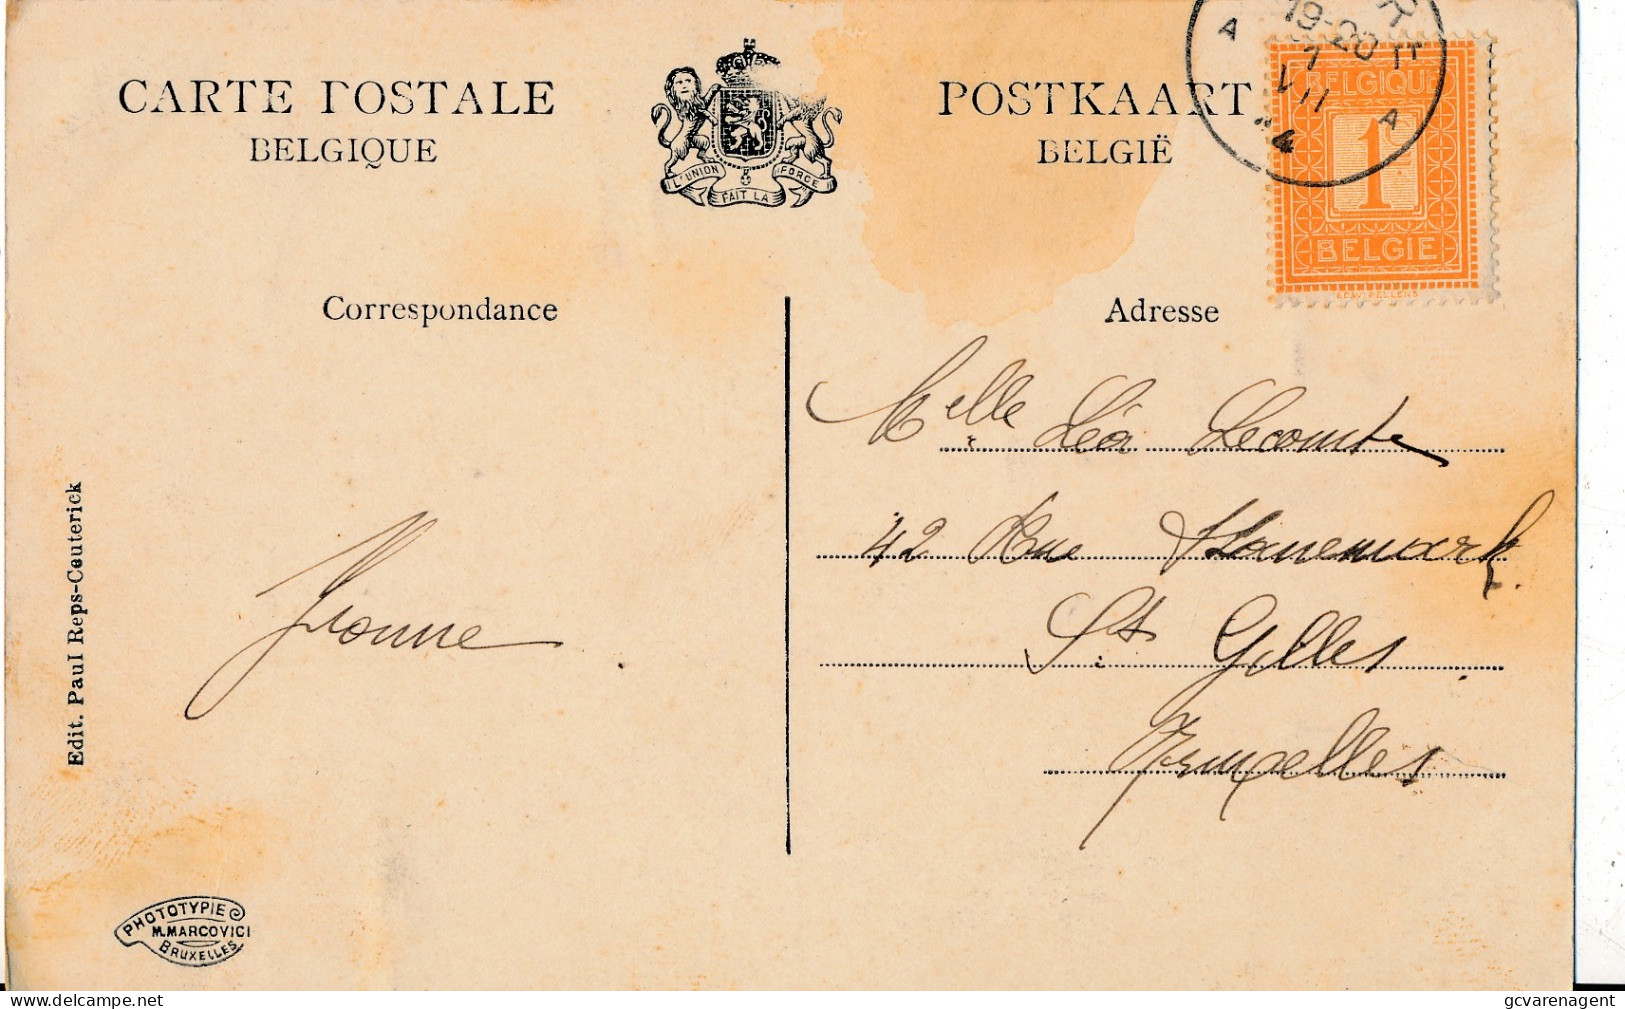 CARTE POSTALE
BELGIQUE
POSTKAART
BELGIË
L'UNION FAIT LA FORCE
19-20
VII
A
A
BELGIQUE
1c
BELGIË
Correspondance
Adresse
Melle Léa Lecomte
42 Rue
St Gilles.
Bruxelles
Yvonne
Edit. Paul Reps-Ceuterick
PHOTOTYPIE
M. MARCOVICI
BRUXELLES
delcampe.net
gcvarenagent